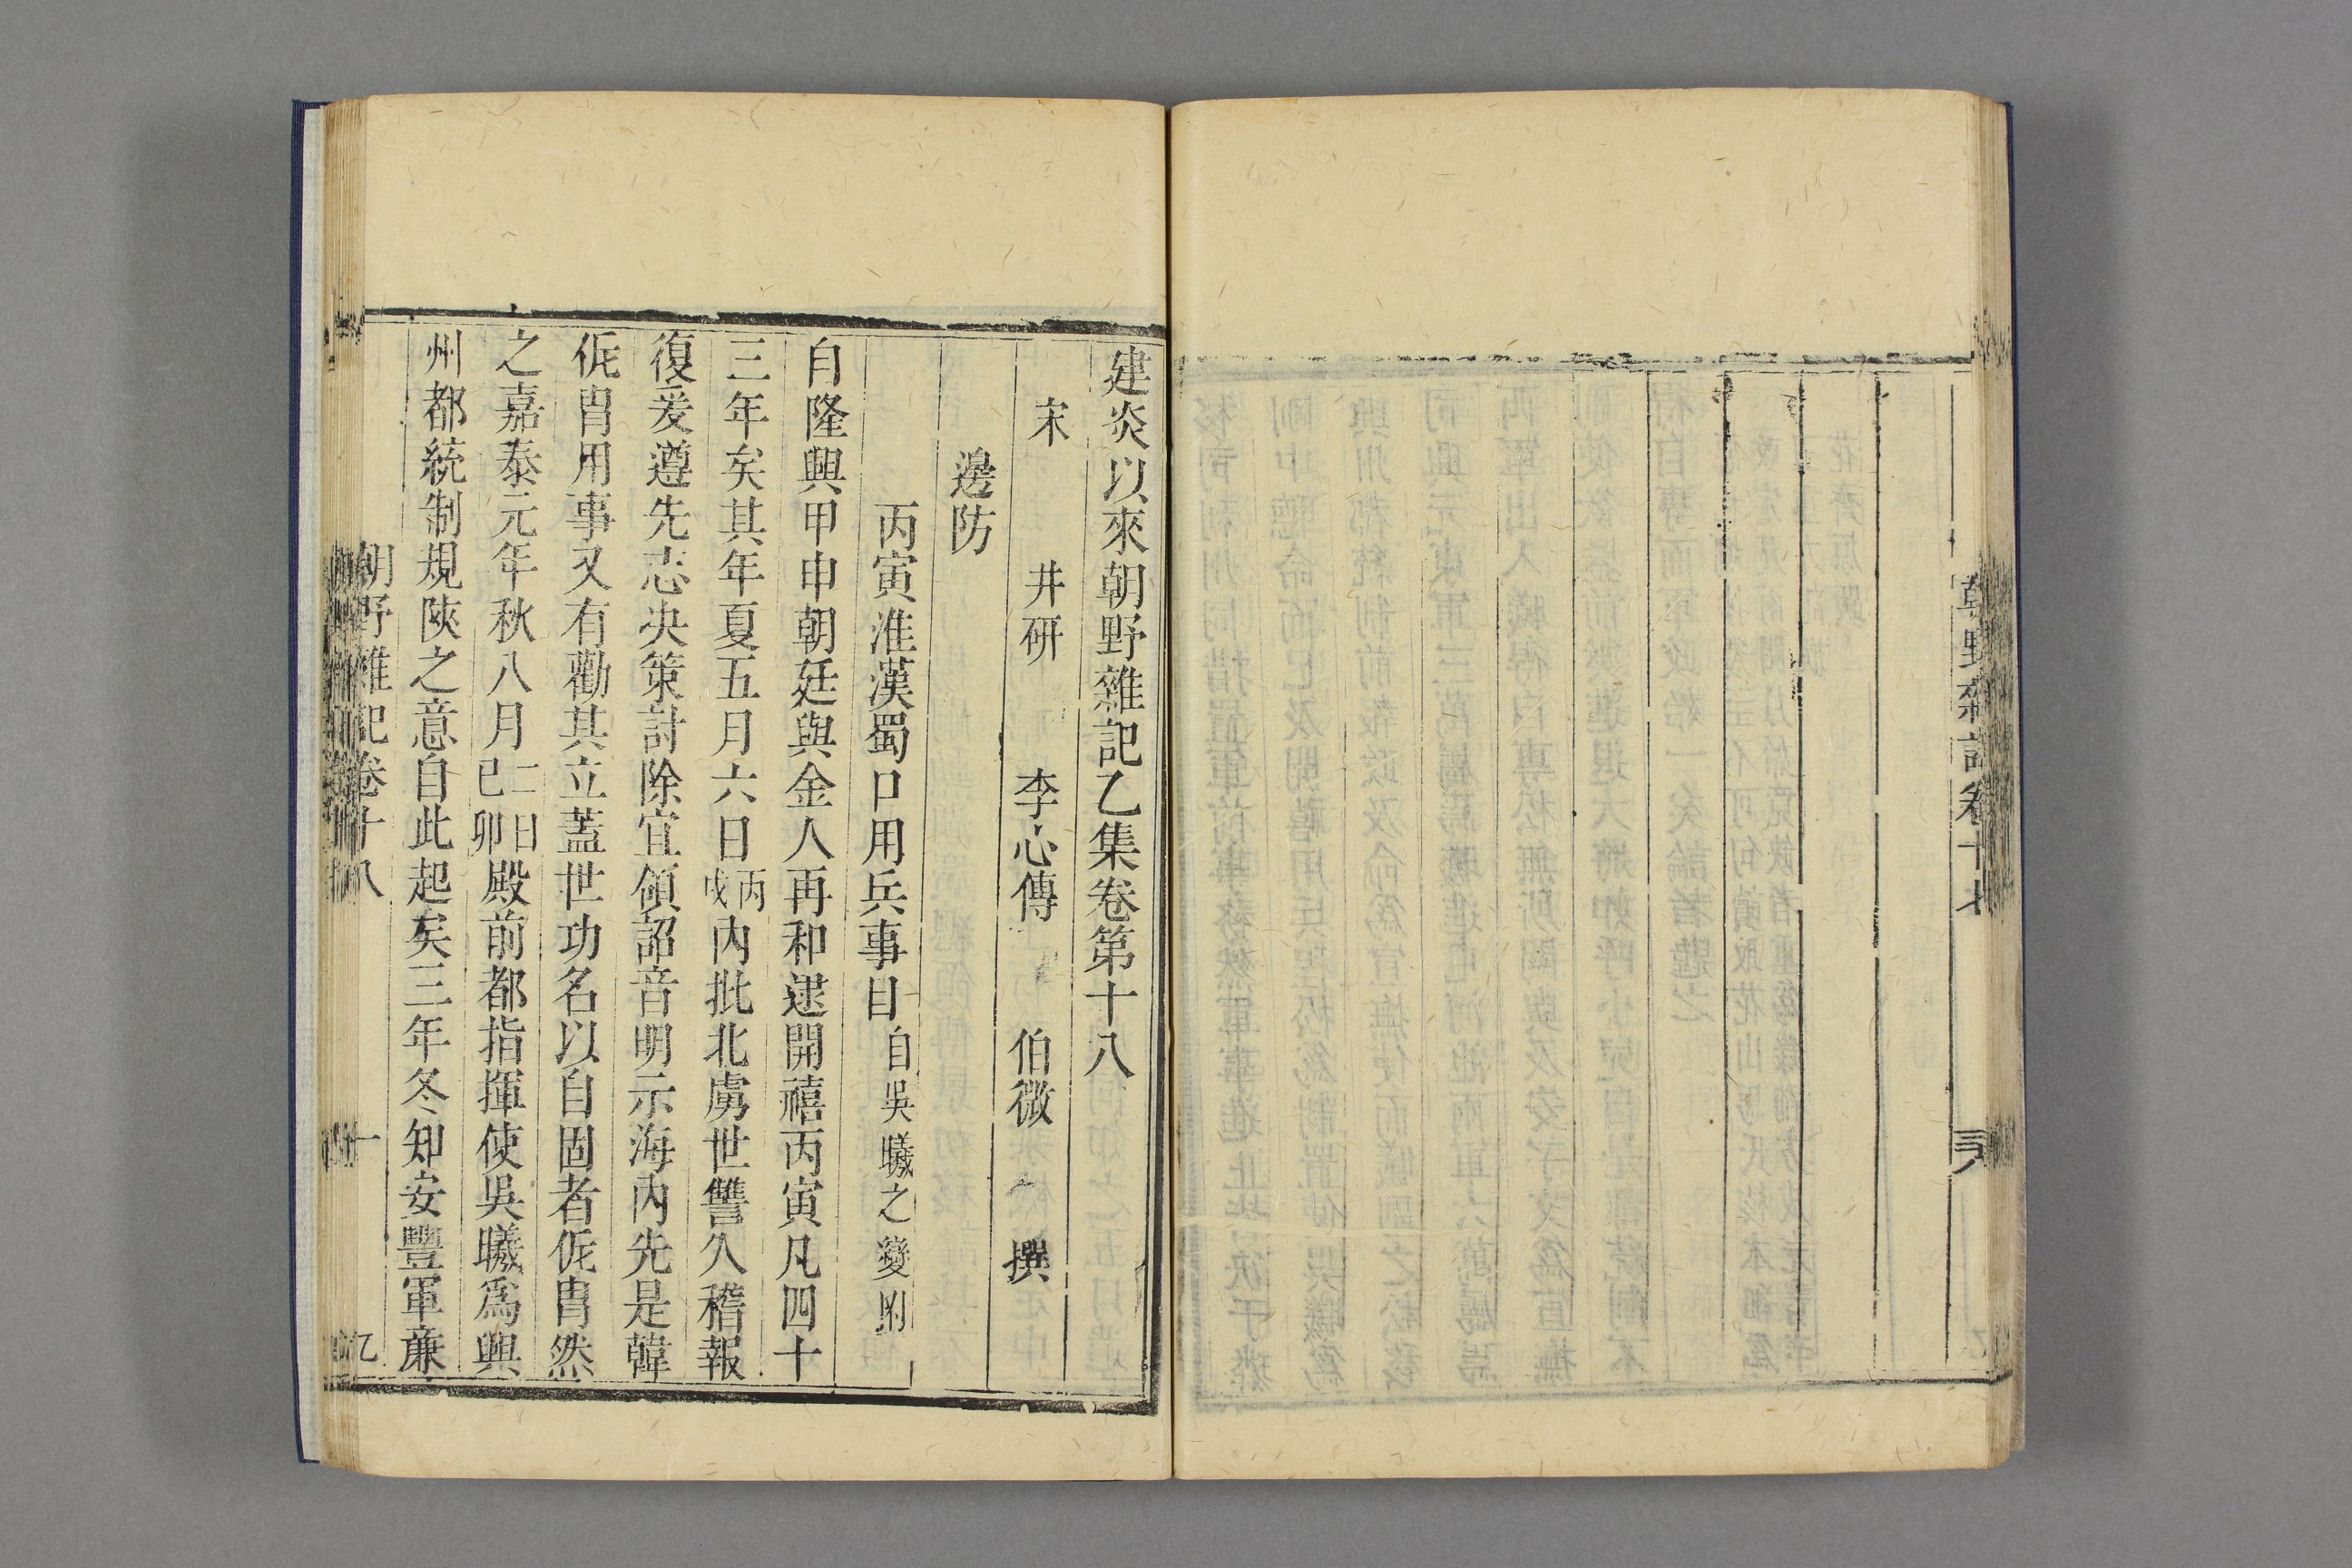 朝野雜記卷十七
建炎以來朝野雜記乙集卷第十八
宋 井研 李心傳 伯微 撰
邊防
丙寅淮漢蜀口用兵事目自吳曦之變附
自隆興甲申朝廷與金人再和逮開禧丙寅凡四十
三年矣其年夏五月六日丙戌內批北虜世讐久稽報
復爰遵先志决策討除宜頒詔音明示海內先是韓
侂冑用事又有勸其立蓋世功名以自固者侂冑然
之嘉泰元年秋八月二日己卯殿前都指揮使吳曦爲興
州都統制規陝之意自此起矣三年冬知安豐軍㢘
朝野雜記卷十八 一 乙